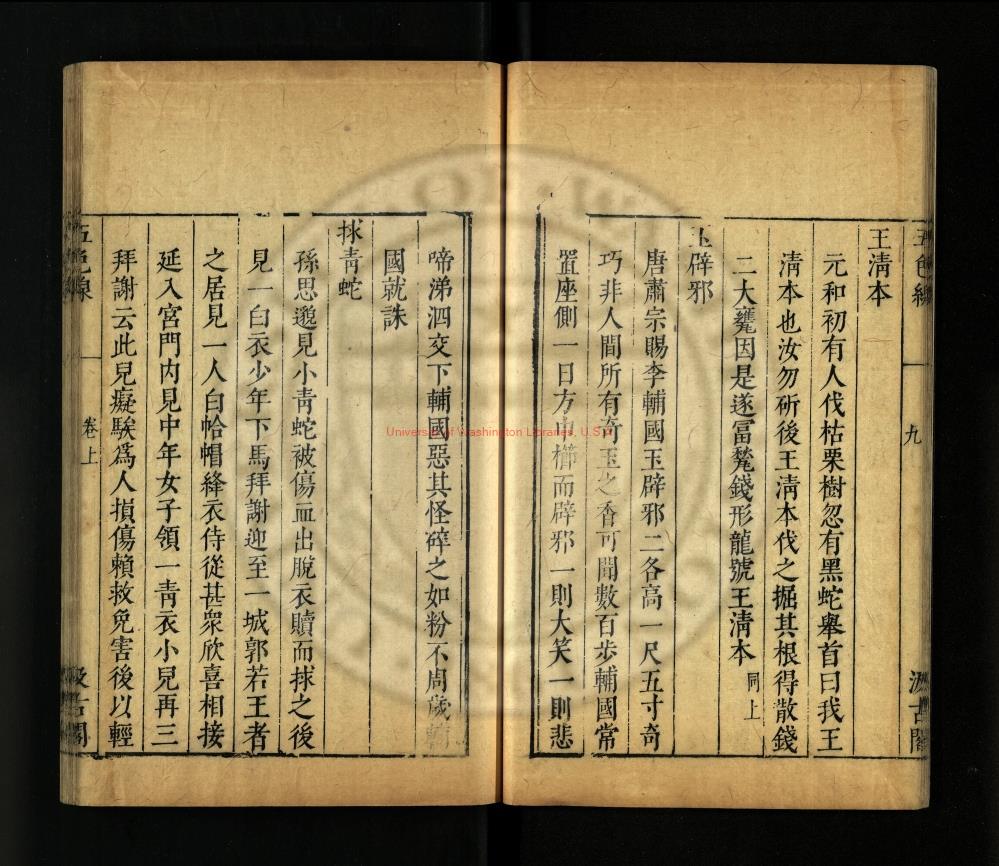 五色線
九
汲古閣
王清本
元和初有人伐枯栗樹忽有黑蛇舉首曰我王
清本也汝勿斫後王清本伐之掘其根得散錢
二大甕因是遂富凳錢形龍號王清本同上
玉辟邪
唐肅宗賜李輔國玉辟邪二各高一尺五寸奇
巧非人間所有奇玉之香可聞數百步輔國常
置座側一日方巾櫛而辟邪一則大笑一則悲
啼涕泗交下輔國惡其怪碎之如粉不周歲輔
國就誅
捄青蛇
孫思邈見小青蛇被傷血出脫衣贖而捄之後
見一白衣少年下馬拜謝迎至一城郭若王者
之居見一人白帢帽絳衣侍從甚衆欣喜相接
延入宮門内見中年女子領一青衣小兒再三
拜謝云此兒癡騃爲人損傷賴救免害後以輕
五色線
卷上
汲古閣
University of Washington Libraries, U.S.A